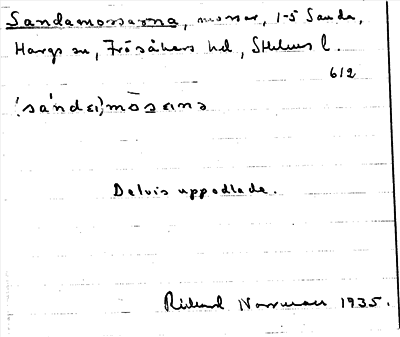 Sandamossarna, mossar, 1-5 Sanda,
Hargs sn, Frösåkers hd, Sthlms l.
612
(sándɑ)mòsɑɪnɑ
Delvis uppodlade.
Rikard Norrman 1935.